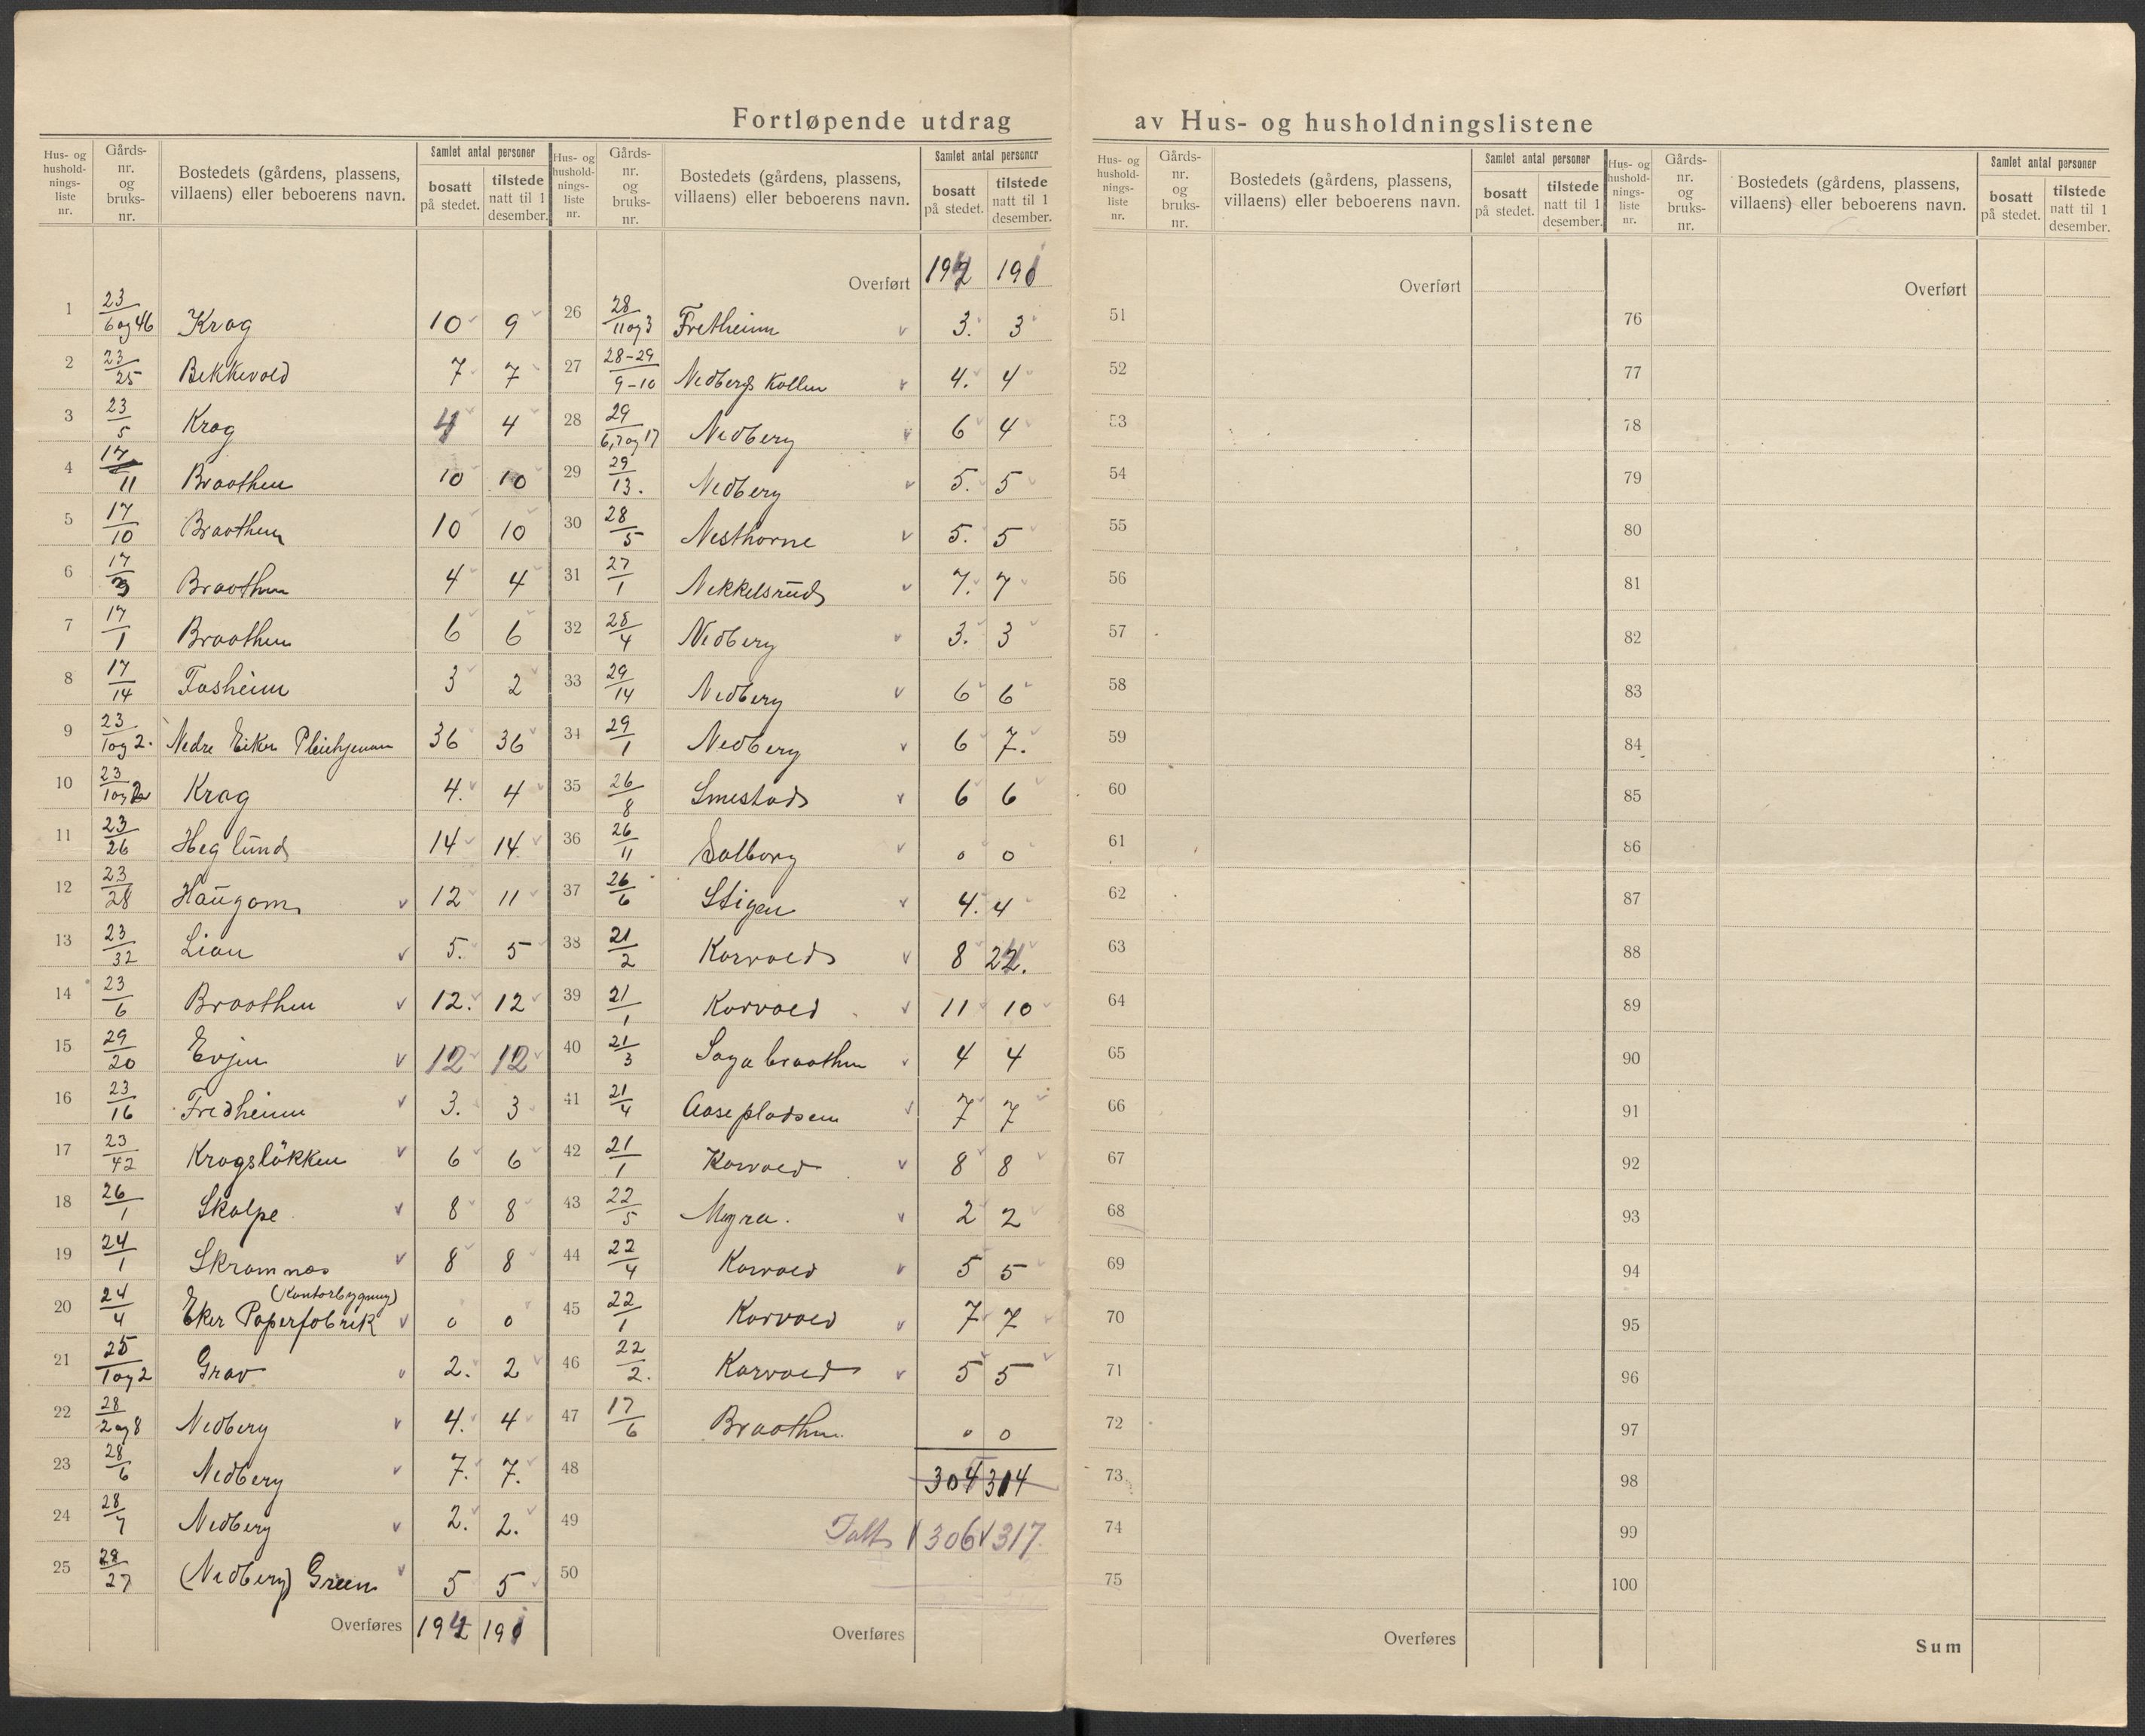 Fortløpende utdrag av Hus- og husholdningslistene
Hus- og hushold-nings-liste nr. | Gårds-nr. og bruks-nr. | Bostedets (gårdens, plassens, villaens) eller beboerens navn. | Samlet antal personer | bosatt på stedet. | tilstede natt til 1 desember.
1 23/6og46 Krag 10 9
2 23/25 Bekkevold 7 7
3 23/5 Krag 4 4
4 17/11 Braathen 10 10
5 17/10 Braathen 10 10
6 17/3 Braathen 4 4
7 17/1 Braathen 6 6
8 17/14 Fosheim 3 2
9 23/1og2. Nedre Eiker Pleiehjem 36 36
10 23/1og2 Krag 4. 4
11 23/26 Heglund 14 14
12 23/28 Haugom 12 11
13 23/32 Lian 5. 5
14 23/6 Braathen 12. 12
15 29/20 Evjen 12 12
16 23/16 Fredheim 3. 3
17 23/42 Kragsløkken 6 6
18 26/1 Skalpe 8 8
19 24/1 Skramnæs 8 8
(Kontorbygning)
20 24/4 Eker Paperfabrik 0 0
21 25/1og2 Grav 2. 2
22 28/2og8 Nedberg 4. 4
23 28/6 Nedberg 7. 7.
24 28/7 Nedberg 2. 2.
25 28/27 (Nedberg) Green 5 5
Overføres 194 191
Hus- og hushold-nings-liste nr. | Gårds-nr. og bruks-nr. | Bostedets (gårdens, plassens, villaens) eller beboerens navn. | Samlet antal personer | bosatt på stedet. | tilstede natt til 1 desember.
Overført 194 191
26 28/11og3 Fretheim 3. 3
27 28-29/9-10 Nedbergs Kollen 4. 4
28 29/6,7og17 Nedberg 6 4
29 29/13. Nedberg 5. 5
30 28/5 Nesthorne 5. 5
31 27/1 Nekkelsrud 7. 7
32 28/4 Nedberg 3. 3
33 29/14 Nedberg 6 6
34 29/1 Nedberg 6 7.
35 26/8 Smestad 6 6
36 26/11 Solborg 0 0
37 26/6 Stigen 4. 4
38 21/2 Korvold 8 22.
39 21/1 Korvold 11 10
40 21/3 Sagabraathen 4 4
41 21/4 Aasepladsen 7 7
42 21/1 Korvold 8 8
43 22/5 Myra. 2 2
44 22/4 Korvold 5 5
45 22/1 Korvold 7 7
46 22/2. Korvold 5 5
47 17/6 Braathen 0 0
48 304 314
49 Ialt 306 317
50
Overføres
Hus- og hushold-nings-liste nr. | Gårds-nr. og bruks-nr. | Bostedets (gårdens, plassens, villaens) eller beboerens navn. | Samlet antal personer | bosatt på stedet. | tilstede natt til 1 desember.
Overført
51
52
53
54
55
56
57
58
59
60
61
62
63
64
65
66
67
68
69
70
71
72
73
74
75
Overføres
Hus- og hushold-nings-liste nr. | Gårds-nr. og bruks-nr. | Bostedets (gårdens, plassens, villaens) eller beboerens navn. | Samlet antal personer | bosatt på stedet. | tilstede natt til 1 desember.
Overført
76
77
78
79
80
81
82
83
84
85
86
87
88
89
90
91
92
93
94
95
96
97
98
99
100
Sum